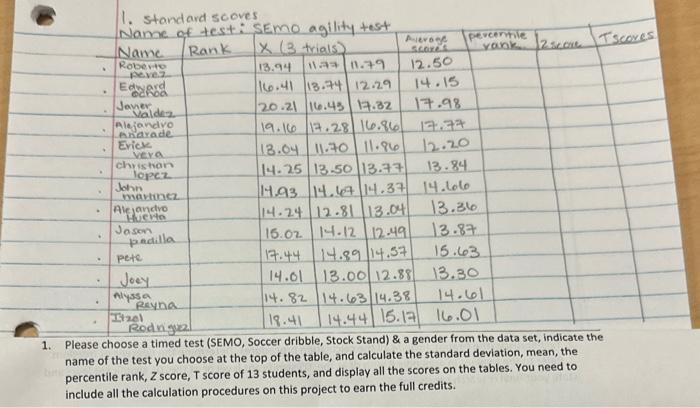 1. Standard scores
Name of test: SEMO agility test
Name Rank X (3 trials) Average scores percentile rank Z score T scores
Roberto Perez 13.94 11.77 11.79 12.50
Edward Ochoa 16.41 13.74 12.29 14.15
Javier Valdez 20.21 16.43 17.32 17.98
Alejandro Andrade 19.16 17.28 16.86 17.77
Erick Vera 13.04 11.70 11.86 12.20
Christian lopez 14.25 13.50 13.77 13.84
John martinez 14.93 14.67 14.37 14.66
Alejandro Huerta 14.24 12.81 13.04 13.36
Jason padilla 15.02 14.12 12.49 13.87
Pete 17.44 14.89 14.57 15.63
Joey 14.01 13.00 12.88 13.30
Alyssa Reyna 14.82 14.63 14.38 14.61
Itzel Rodriguez 18.41 14.44 15.17 16.01
1. Please choose a timed test (SEMO, Soccer dribble, Stock Stand) & a gender from the data set, indicate the
name of the test you choose at the top of the table, and calculate the standard deviation, mean, the
percentile rank, Z score, T score of 13 students, and display all the scores on the tables. You need to
include all the calculation procedures on this project to earn the full credits.